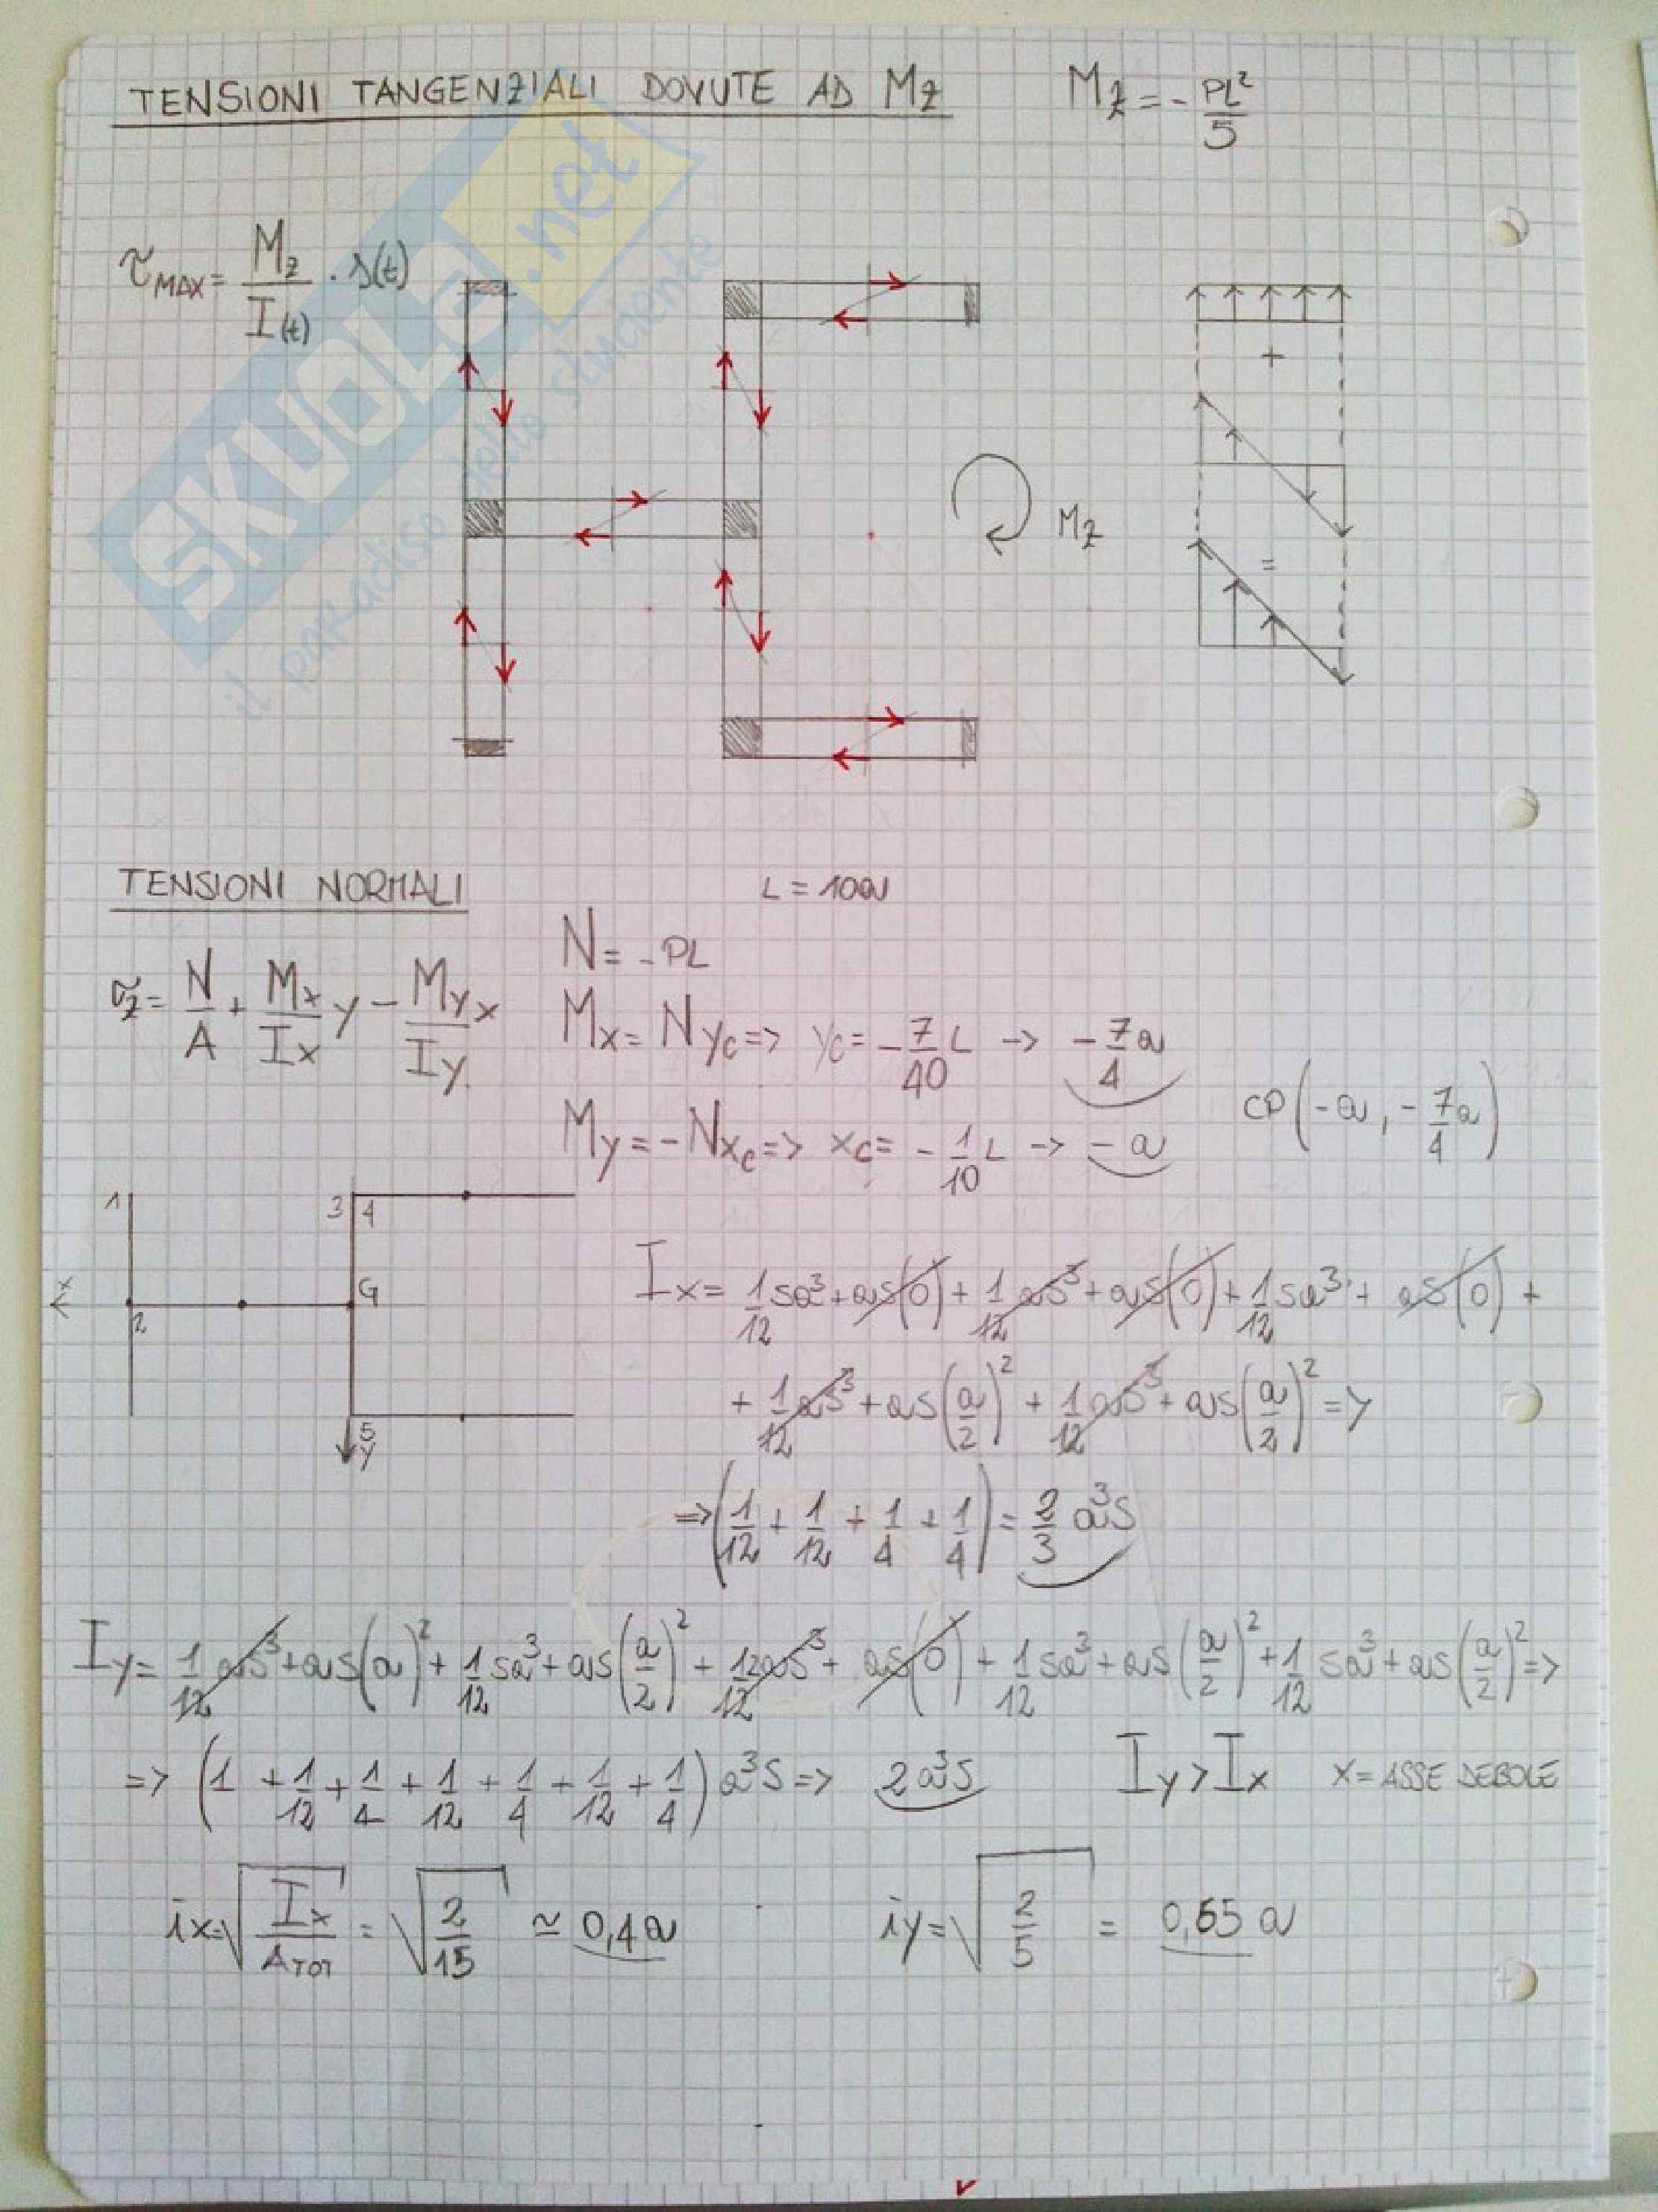 TENSIONI TANGENZIALI DOVUTE AD Mz Mz = - PL²/5
τMAX = Mz/I(t) · s(t)
SKUOLA.net
il paradiso dello studente
+
Mz
=
TENSIONI NORMALI L = 10a
σz = N/A + Mx/Ix y - My/Iy x
N = -PL
Mx = Nyc => yc = -7/40 L -> -7/4 a
CP (-a, -7/4 a)
My = -Nxc => xc = -1/10 L -> -a
1 3 4
x G
2
5
y
Ix = 1/12 sa³ + as(0) + 1/12 as³ + as(0) + 1/12 sa³ + as(0) +
+ 1/12 as³ + as(a/2)² + 1/12 as³ + as(a/2)² =>
=> (1/12 + 1/12 + 1/4 + 1/4) = 2/3 a³s
Iy = 1/12 as³ + as(a)² + 1/12 sa³ + as(a/2)² + 12/12 as³ + as(0) + 1/12 sa³ + as(a/2)² + 1/12 sa³ + as(a/2)² =>
=> (1 + 1/12 + 1/4 + 1/12 + 1/4 + 1/12 + 1/4) a³s => 2a³s Iy > Ix x = ASSE DEBOLE
ix = √(Ix/ATOT) = √(2/15) ≃ 0,4a iy = √(2/5) = 0,65 a